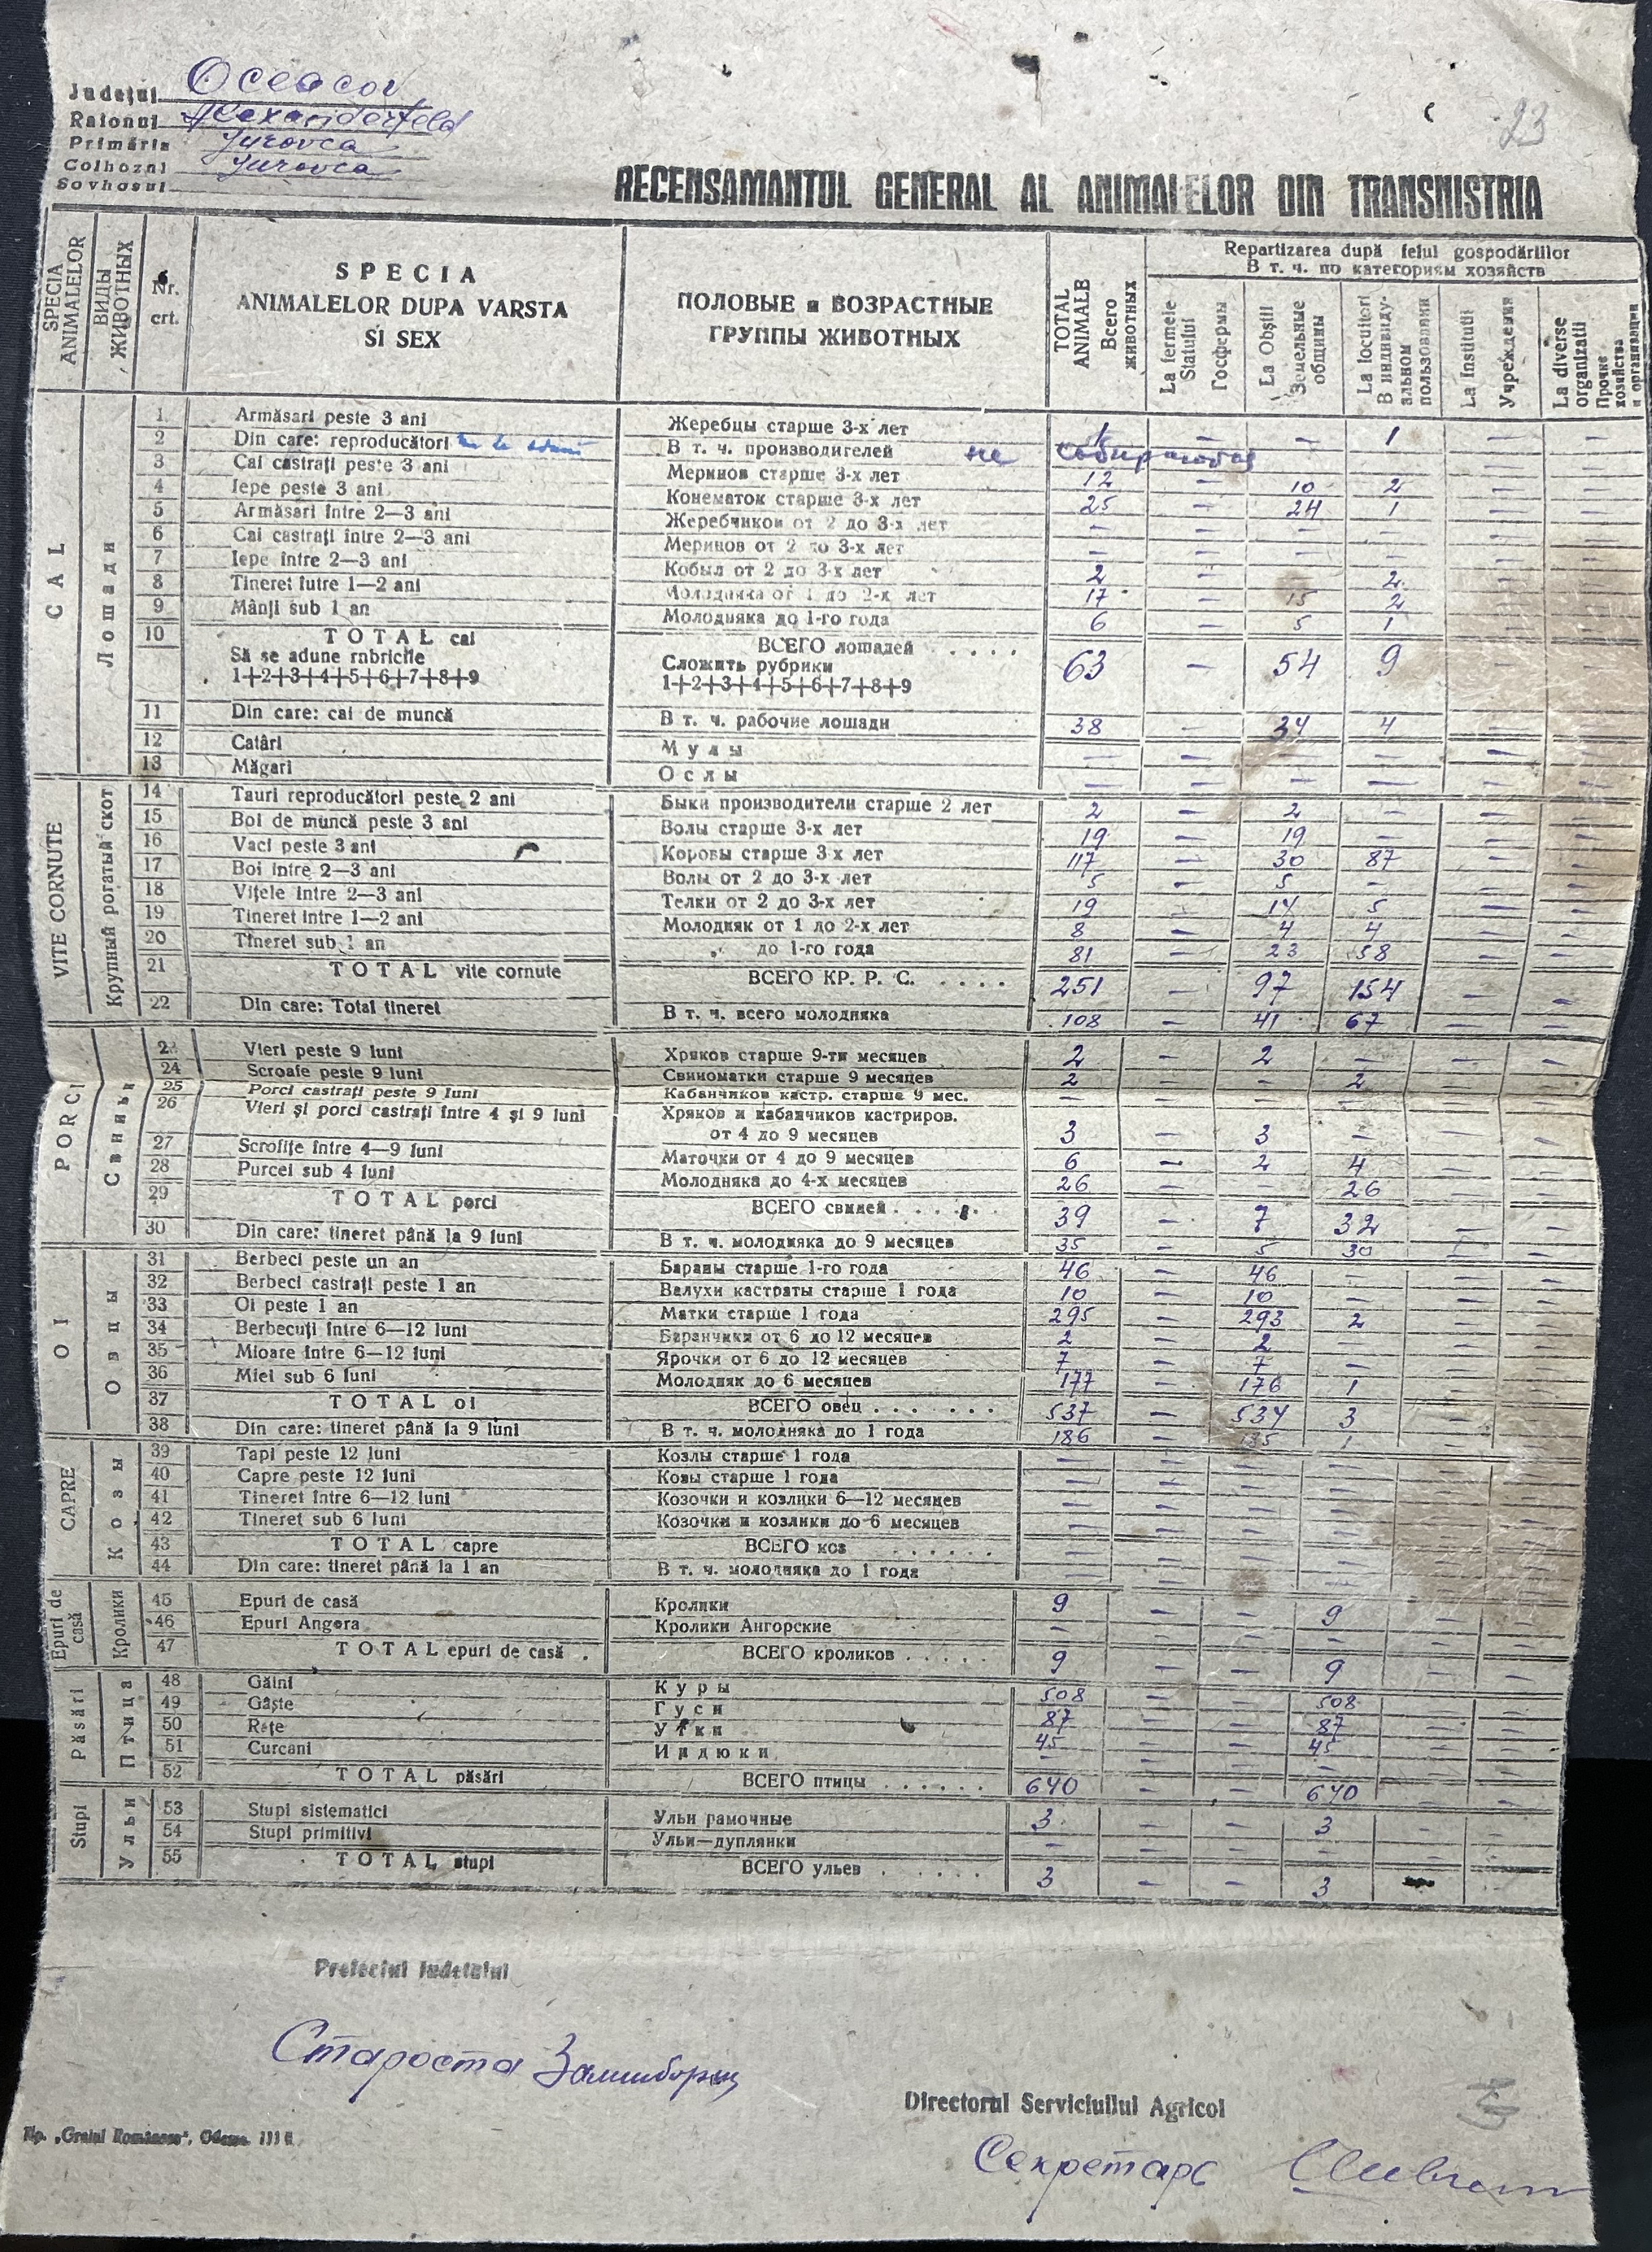 23
Judeţul Oceacov
Raionul Alexanderfeld
Primăria Jurovca
Colhozul Jurovca
Sovhosul
RECENSAMANTUL GENERAL AL ANIMALELOR DIN TRANSNISTRIA
SPECIA ANIMALELOR
ВИДЫ ЖИВОТНЫХ
Nr. crt.
SPECIA ANIMALELOR DUPA VARSTA SI SEX
ПОЛОВЫЕ и ВОЗРАСТНЫЕ ГРУППЫ ЖИВОТНЫХ
TOTAL ANIMALE Всего животных
Repartizarea după felul gospodăriilor
В т. ч. по категориям хозяйств
La fermele Statului Госфермы
La Obştii Земельные общины
La locuitori В индивидуальном пользовании
La Institutii Учреждения
La diverse organizatii Прочие хозяйства и организации
CAL Лошади
1 Armăsari peste 3 ani Жеребцы старше 3-х лет 1 — — 1 — —
2 Din care: reproducători В т. ч. производителей не
3 Cai castraţi peste 3 ani Меринов старше 3-х лет 12 — 10 2 — —
4 Iepe peste 3 ani Конематок старше 3-х лет 25 — 24 1 — —
5 Armăsari între 2—3 ani Жеребчиков от 2 до 3-х лет — — — — — —
6 Cai castraţi între 2—3 ani Меринов от 2 до 3-х лет — — — — — —
7 Iepe între 2—3 ani Кобыл от 2 до 3-х лет 2 — — 2 — —
8 Tineret între 1—2 ani Молодняка от 1 до 2-х лет 17 — 15 2 — —
9 Mânji sub 1 an Молодняка до 1-го года 6 — 5 1 — —
10 TOTAL cai ВСЕГО лошадей . . . .
Să se adune rnbricile Сложить рубрики 63 — 54 9 — —
1+2+3+4+5+6+7+8+9 1+2+3+4+5+6+7+8+9
11 Din care: cai de muncă В т. ч. рабочие лошади 38 — 34 4 — —
12 Catâri Мулы — — — — — —
13 Măgari Ослы — — — — — —
VITE CORNUTE Крупный рогатый скот
14 Tauri reproducători peste 2 ani Быки производители старше 2 лет 2 — 2 — — —
15 Boi de muncă peste 3 ani Волы старше 3-х лет 19 — 19 — — —
16 Vaci peste 3 ani Коровы старше 3-х лет 117 — 30 87 — —
17 Boi între 2—3 ani Волы от 2 до 3-х лет 5 — 5 — — —
18 Viţele între 2—3 ani Телки от 2 до 3-х лет 19 — 14 5 — —
19 Tineret intre 1—2 ani Молодняк от 1 до 2-х лет 8 — 4 4 — —
20 Tineret sub 1 an „ до 1-го года 81 — 23 58 — —
21 TOTAL vite cornute ВСЕГО КР. Р. С. . . . . 251 — 97 154 — —
22 Din care: Total tineret В т. ч. всего молодняка 108 — 41 67 — —
PORCI Свиньи
23 Vieri peste 9 luni Хряков старше 9-ти месяцев 2 — 2 — — —
24 Scroafe peste 9 luni Свиноматки старше 9 месяцев 2 — — 2 — —
25 Porci castraţi peste 9 luni Кабанчиков кастр. старше 9 мес. — — — — — —
26 Vieri şi porci castraţi între 4 şi 9 luni Хряков и кабанчиков кастриров.
от 4 до 9 месяцев 3 — 3 — — —
27 Scrofiţe între 4—9 luni Маточки от 4 до 9 месяцев 6 — 2 4 — —
28 Purcei sub 4 luni Молодняка до 4-х месяцев 26 — — 26 — —
29 TOTAL porci ВСЕГО свиней . . . . . 39 — 7 32 — —
30 Din care: tineret până la 9 luni В т. ч. молодняка до 9 месяцев 35 — 5 30 — —
OI Овцы
31 Berbeci peste un an Бараны старше 1-го года 46 — 46 — — —
32 Berbeci castraţi peste 1 an Валухи кастраты старше 1 года 10 — 10 — — —
33 Oi peste 1 an Матки старше 1 года 295 — 293 2 — —
34 Berbecuţi între 6—12 luni Баранчики от 6 до 12 месяцев 2 — 2 — — —
35 Mioare între 6—12 luni Ярочки от 6 до 12 месяцев 7 — 7 — — —
36 Miei sub 6 luni Молодняк до 6 месяцев 177 — 176 1 — —
37 TOTAL oi ВСЕГО овец . . . . . . . 537 — 534 3 — —
38 Din care: tineret până la 9 luni В т. ч. молодняка до 1 года 186 — 185 1 — —
CAPRE Козы
39 Tapi peste 12 luni Козлы старше 1 года — — — — — —
40 Capre peste 12 luni Козы старше 1 года — — — — — —
41 Tineret între 6—12 luni Козочки и козлики 6—12 месяцев — — — — — —
42 Tineret sub 6 luni Козочки и козлики до 6 месяцев — — — — — —
43 TOTAL capre ВСЕГО коз . . . . . . — — — — — —
44 Din care: tineret până la 1 an В т. ч. молодняка до 1 года — — — — — —
Epuri de casă Кролики
45 Epuri de casă Кролики 9 — — 9 — —
46 Epuri Angora Кролики Ангорские — — — — — —
47 TOTAL epuri de casă . ВСЕГО кроликов . . . . . 9 — — 9 — —
Păsări Птица
48 Găini Куры 508 — — 508 — —
49 Gâşte Гуси 87 — — 87 — —
50 Raţe Утки 45 — — 45 — —
51 Curcani Индюки — — — — — —
52 TOTAL păsări ВСЕГО птицы . . . . . . 640 — — 640 — —
Stupi Ульи
53 Stupi sistematici Ульи рамочные 3 — — 3 — —
54 Stupi primitivi Ульи—дуплянки — — — — — —
55 TOTAL stupi ВСЕГО ульев . . . . . 3 — — 3 — —
Prefectul Iudetului
Староста
Directorul Serviciului Agricol
Tip. „Graiul Românesc“, Odessa
Секретарь